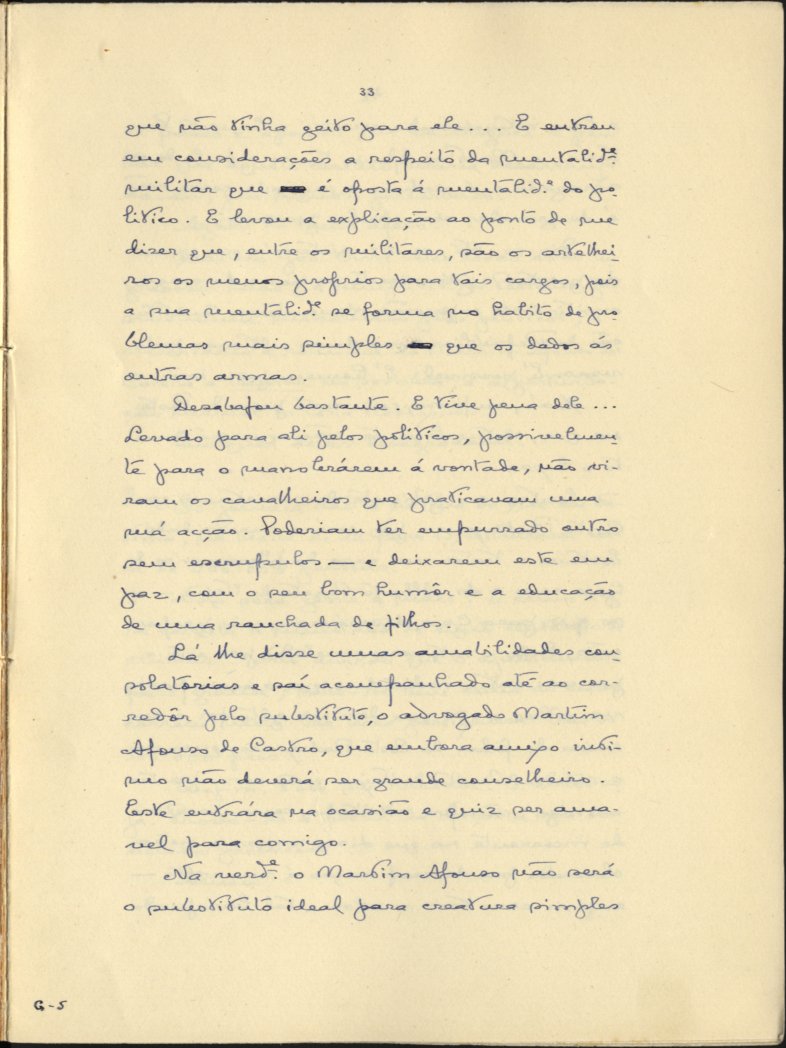 33
que não tinha geito para ele... E entrou
em considerações a respeito da mentalid.e
militar que é oposta á mentalid.e do po-
litico. E levou a explicação ao ponto de me
dizer que, entre os militares, são os artelhei-
ros os menos proprios para tais cargos, pois
a sua mentalid.e se forma no habito de pro-
blemas mais simples que os dados ás
outras armas.
Desabafou bastante. E tive pena dele...
Levado para ali pelos políticos, possivelmen-
te para o manobrárem á vontade, não vi-
ram os cavalheiros que praticavam uma
má acção. Poderiam ter empurrado outro
sem escrupulos — e deixarem este em
paz, com o seu bom humôr e a educação
de uma ranchada de filhos.
Lá lhe disse umas amabilidades con-
solatorias e saí acompanhado até ao cor-
redôr pelo substituto, o advogado Martim
Afonso de Castro, que embora amigo inti-
mo não deverá ser grande conselheiro.
Este entrára na ocasião e quiz ser ama-
vel para comigo.
Na verd.e o Martim Afonso não será
o substituto ideal para creatura simples
G-5